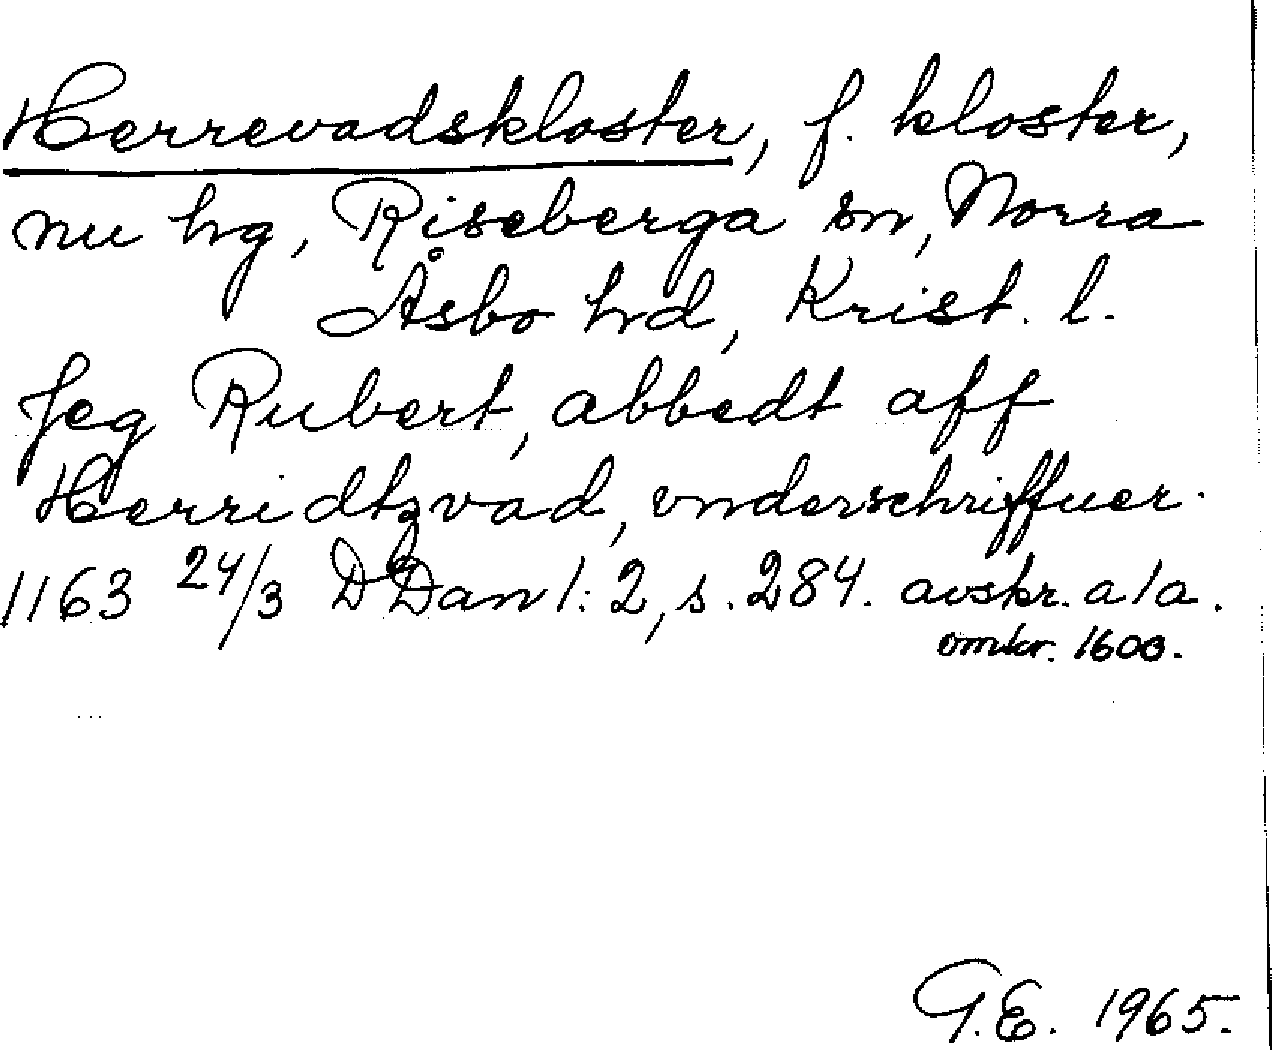 Herrevadskloster, f. kloster,
nu hg, Riseberga sn, Norra
Åsbo hd, Krist. l.
Jeg Rubert, abbedt aff
Herridtzvad, vnderschriffuer.
1163 24/3 DDan 1:2, s. 284. avskr. a/a.
omkr. 1600.
G.E. 1965.